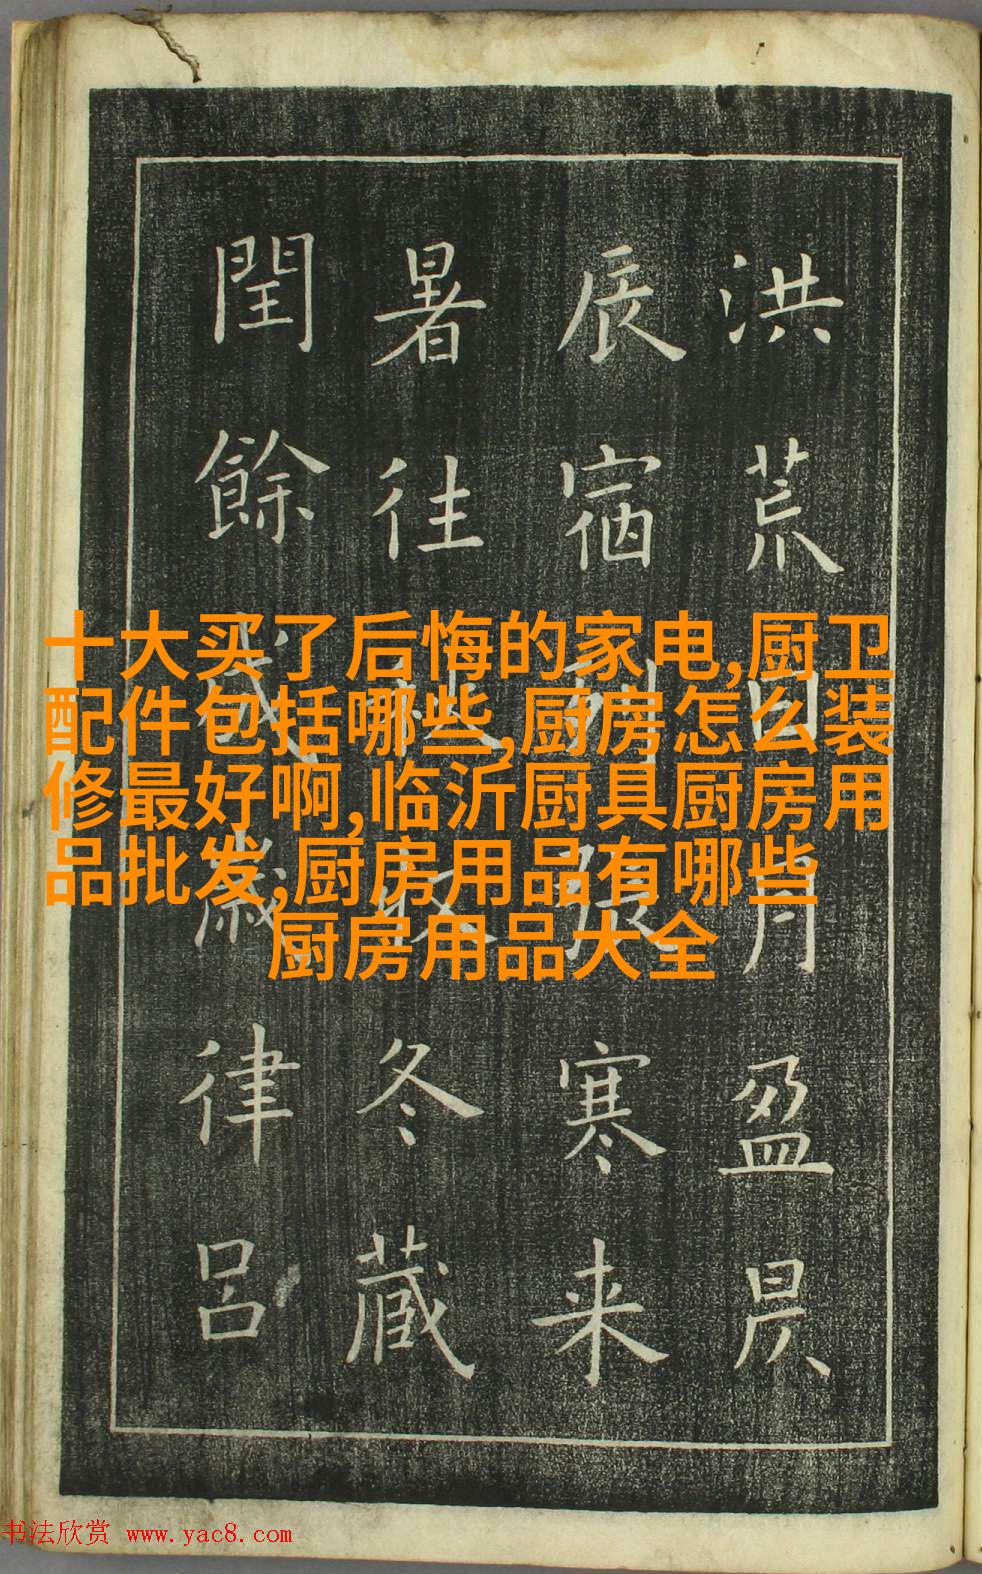 洪荒日月盈昃
辰宿列張寒来
暑往收冬藏
閏餘成歲律呂
十大买了后悔的家电,厨卫
配件包括哪些,厨房怎么装
修最好啊,临沂厨具厨房用
品批发,厨房用品有哪些
厨房用品大全
书法欣赏 www.yac8.com